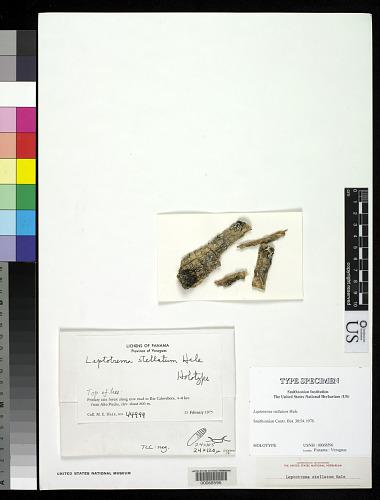 copyright reserved
US
LICHENS OF PANAMA
Province of Veraguas
Leptotrema stellatum Hale
Holotype
Top of tree
Primary rain forest along new road to Rio Calovébora, 4-8 km
from Alto Piedra, elev. about 400 m.
Coll. M. E. HALE, no. 44999
23 February 1975
TLC: neg.
UNITED STATES NATIONAL MUSEUM
00068596
TYPE SPECIMEN
Smithsonian Institution
The United States National Herbarium (US)
Leptotrema stellatum Hale
Smithsonian Contr. Bot. 38:54. 1978.
HOLOTYPE USNH: 00068596
Panama : Veraguas
THE UNITED STATES NATIONAL HERBARIUM
Leptotrema stellatum Hale